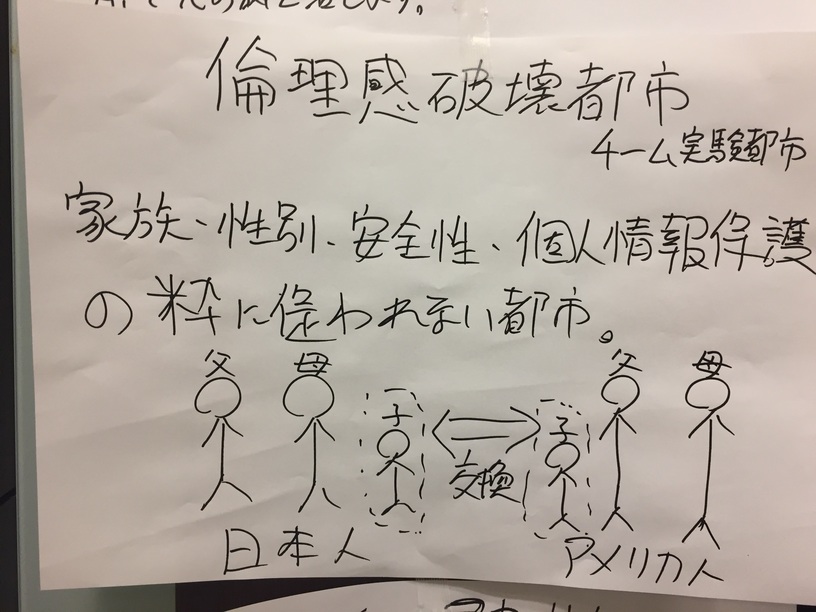 します。
倫理感破壊都市
チーム実験都市
家族、性別、安全性、個人情報保護
の粋に促われない都市。
父 母 子 子 父 母
交換
日本人 アメリカ人